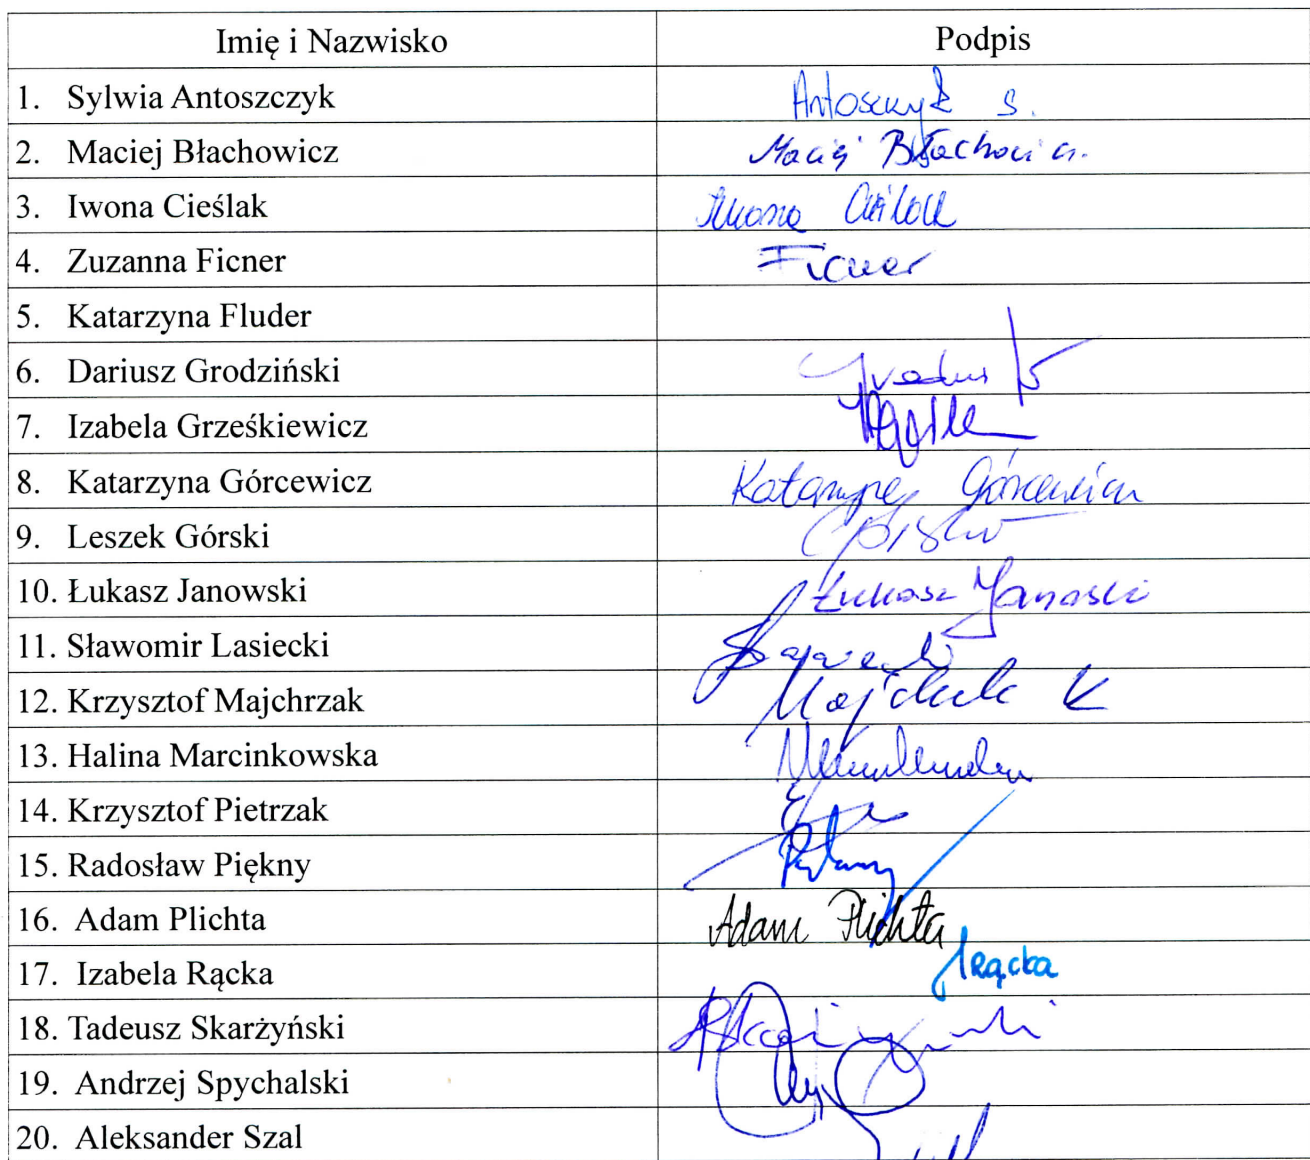 Imię i Nazwisko Podpis
1. Sylwia Antoszczyk Antoszczyk S.
2. Maciej Błachowicz Maciej Błachowicz
3. Iwona Cieślak Iwona Cieślak
4. Zuzanna Ficner Ficner
5. Katarzyna Fluder
6. Dariusz Grodziński
7. Izabela Grześkiewicz
8. Katarzyna Górcewicz Katarzyna Górcewicz
9. Leszek Górski Górski
10. Łukasz Janowski Łukasz Janowski
11. Sławomir Lasiecki
12. Krzysztof Majchrzak K
13. Halina Marcinkowska
14. Krzysztof Pietrzak
15. Radosław Piękny
16. Adam Plichta Adam Plichta
17. Izabela Rącka IRącka
18. Tadeusz Skarżyński
19. Andrzej Spychalski
20. Aleksander Szal